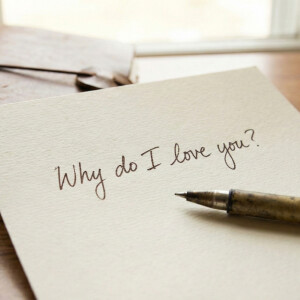 Why do I love you?